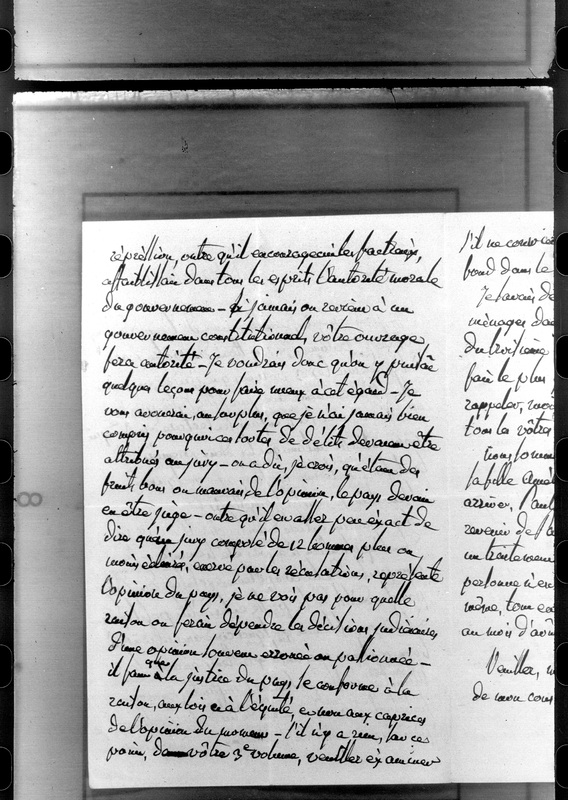 répréssion, outre qu'il encourageait les factieux,
affaiblissait dans tous les esprits l'autorité morale
du gouvernement - si jamais on revient à un
gouvernement constitutionnel, vôtre ouvrage
fera autorité - Je voudrais donc qu'on y puisât
quelques leçons pour faire mieux à cet égard - Je
vous avouerai, au surplus, que je n'ai jamais bien
compris pourquoi ces sortes de délits devaient être
attribués au jury - on a dit, je crois, qu'étant des
fruits bons ou mauvais de l'opinion, le pays devait
en être juge - outre qu'il est assez peu éxact de
dire qu'un jury composé de 12 hommes plus ou
moins éclairés, énervé par les récusations, représente
l'opinion du pays, je ne vois pas pour quelle
raison on ferait dépendre les décisions judiciaires
d'une opinion souvent erronée ou passionnée -
il faut que la justice du pays se conforme à la
raison, aux lois et à l'équité, et non aux caprices
de l'opinion du moment - s'il n'y a rien, sur ce
point, dans vôtre 3e volume, veuillez éxaminer
s'il ne
bond dans le
Je
ménager dans
du
fait le plus
rappeler,
tous les vôtres
nous
la belle
arriver,
revenir de
un traitement
personne n'en
même, tout
au mois d'
Veuillez,
de mon